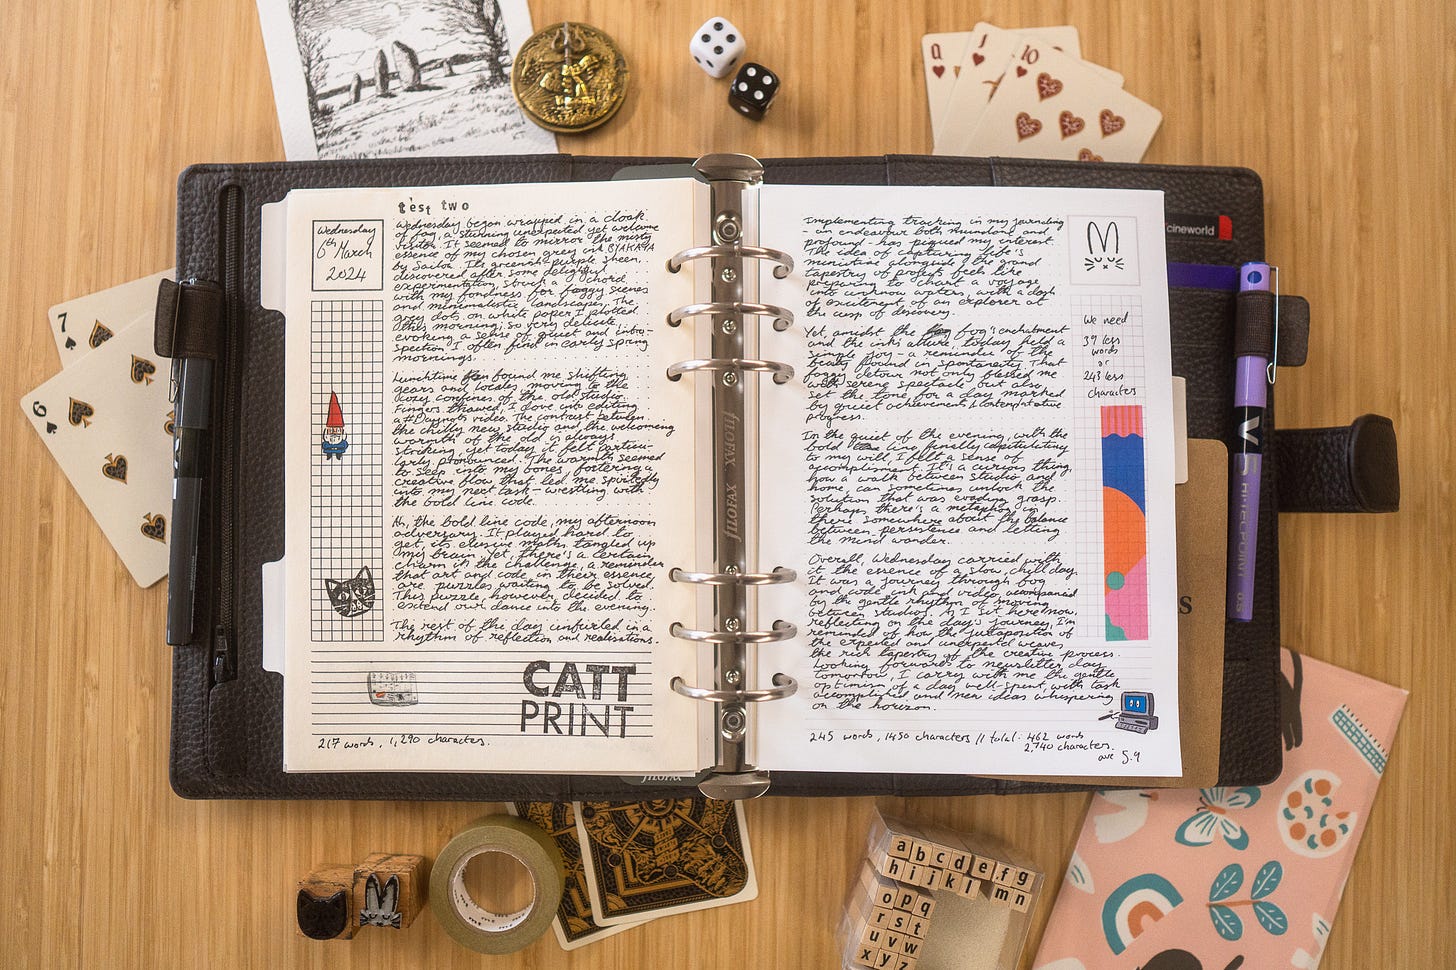 test two
Wednesday
6th March
2024
Wednesday began wrapped in a cloak
of fog, a stunning unexpected yet welcome
visitor. It seemed to mirror the misty
essence of my chosen grey ink BYAKAYA
by Sailor. Its greenish purple sheen,
discovered after some delightful
experimentation, struck a chord
with my fondness for foggy scenes
and minimalistic landscapes. The
grey dots on white paper I plotted
this morning, so very delicate,
evoking a sense of quiet and intro-
spection I often find in early spring
mornings.
Lunchtime found me shifting
gears and locales, moving to the
cozy confines of the old studio.
Fingers thawed, I dove into editing
a video. The contrast between
the chilly new studio and the welcoming
warmth of the old is always
striking, yet today it felt particu-
larly pronounced. The warmth seemed
to seep into my bones, fostering a
creative flow that led me spiritedly
into my next task - wrestling with
the bold line code.
Ah, the bold line code, my afternoon
adversary. It played hard to
get, its elusive maths tangled up
my brain. Yet, there's a certain
charm in the challenge, a reminder
that art and code, in their essence,
are puzzles waiting to be solved.
This puzzle, however, decided to
extend our dance into the evening.
The rest of the day unfurled in a
rhythm of reflection and realisations.
CATT
PRINT
217 words, 1,290 characters.
Implementing tracking in my journaling
- an endeavour both mundane and
profound - has piqued my interest.
The idea of capturing life's
minutiae alongside the grand
tapestry of projects feels like
preparing to chart a voyage
into unknown waters, with a dash
of excitement of an explorer at
the cusp of discovery.
Yet amidst the fog's enchantment
and the ink's allure, today held a
simple joy - a reminder of the
beauty found in spontaneity. That
foggy detour not only blessed me
with serene spectacle but also
set the tone for a day marked
by quiet achievements & contemplative
progress.
In the quiet of the evening, with the
bold line finally capitulating
to my will, I felt a sense of
accomplishment. It's a curious thing,
how a walk between studio and
home, can sometimes unlock the
solution that was evading grasp.
Perhaps, there's a metaphor in
there somewhere about the balance
between persistence and letting
the mind wander.
Overall, Wednesday carried with
it the essence of a slow, chill day.
It was a journey through fog
and code, ink and video, accompanied
by the gentle rhythm of moving
between studios. As I sit here now,
reflecting on the day's journey, I'm
reminded of how the juxtaposition of
the expected and unexpected weaves
the rich tapestry of the creative process.
Looking forward to newsletter day
tomorrow, I carry with me the gentle
optimism of a day well-spent, with task
accomplished and new ideas whispering
on the horizon.
We need
37 less
words
or
243 less
characters
245 words, 1450 characters // total: 462 words
2,740 characters.
ave 5.9
FILOFAX
FILOFAX
filofax
cineworld
V5 HI-TECPOINT 0.5
S
Q
J
10
7
6
a b c d e f g
h i j k l m n
o p q
r s t
u v w
x y z